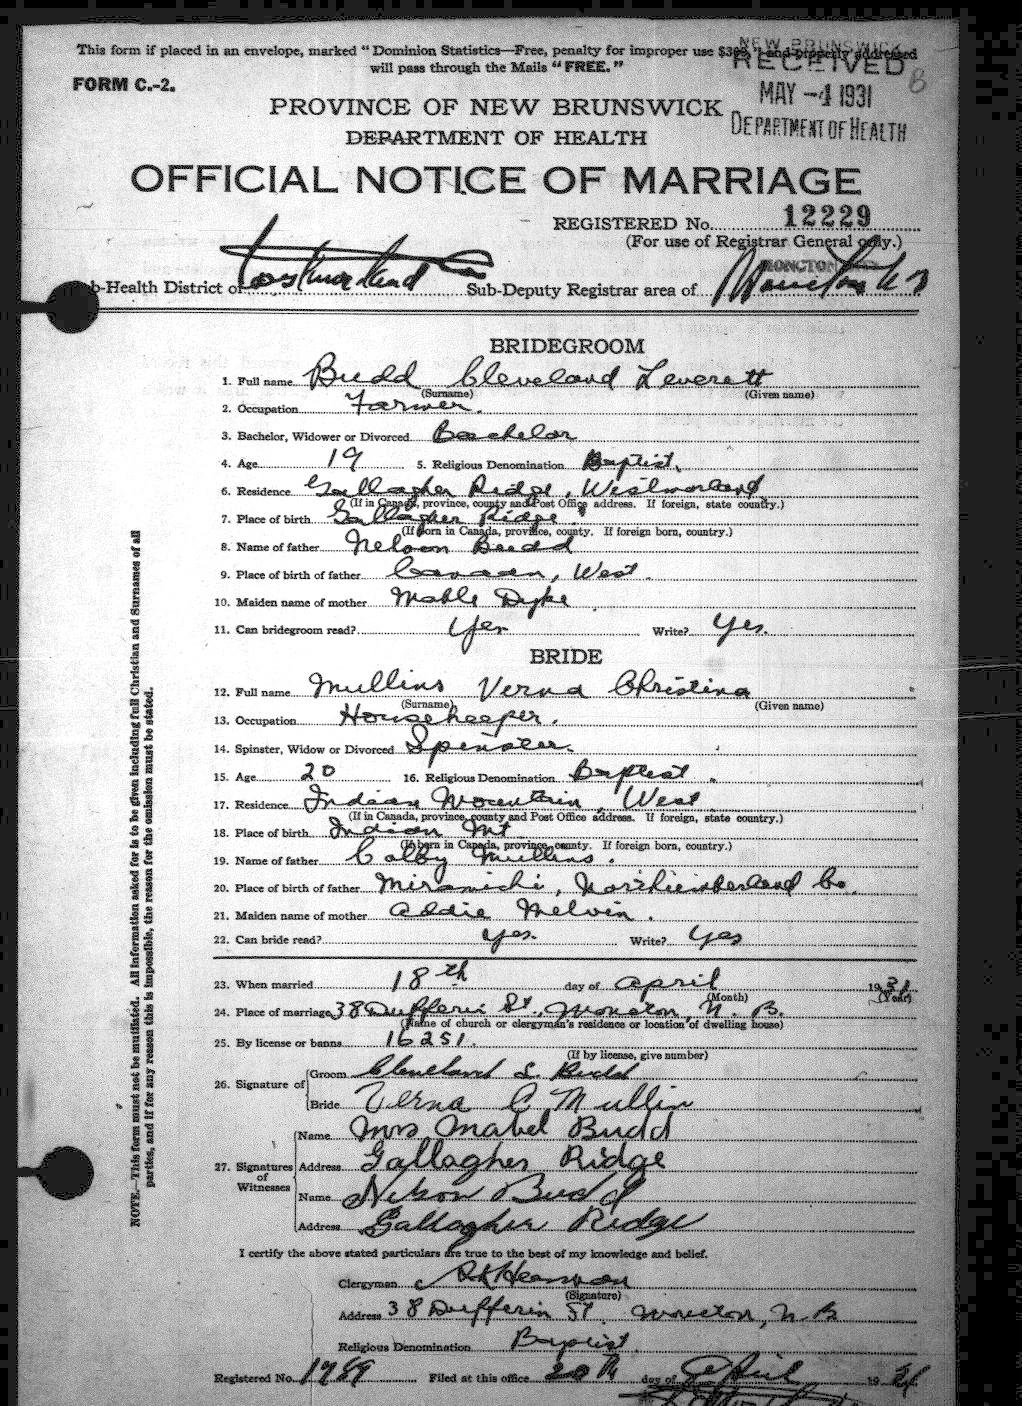 This form if placed in an envelope, marked "Dominion Statistics—Free, penalty for improper use $300," and properly addressed
will pass through the Mails "FREE."
NEW BRUNSWICK
RECEIVED
MAY -4 1931
DEPARTMENT OF HEALTH
8
FORM C.-2.
PROVINCE OF NEW BRUNSWICK
DEPARTMENT OF HEALTH
OFFICIAL NOTICE OF MARRIAGE
REGISTERED No. 12229
(For use of Registrar General only.)
Sub-Health District of Westmorland Co Sub-Deputy Registrar area of Moncton N B
MONCTON
BRIDEGROOM
1. Full name Budd Cleveland Leverett
(Surname) (Given name)
2. Occupation Farmer.
3. Bachelor, Widower or Divorced Bachelor
4. Age 19 5. Religious Denomination Baptist.
6. Residence Gallagher Ridge, Westmorland
(If in Canada, province, county and Post Office address. If foreign, state country.)
7. Place of birth Gallagher Ridge
(If born in Canada, province, county. If foreign born, country.)
8. Name of father Nelson Budd
9. Place of birth of father Canaan, West.
10. Maiden name of mother Mable Dyke
11. Can bridegroom read? Yes Write? Yes.
BRIDE
12. Full name Mullins Verna Christina
(Surname) (Given name)
13. Occupation Housekeeper.
14. Spinster, Widow or Divorced Spinster.
15. Age 20 16. Religious Denomination Baptist.
17. Residence Indian Mountain, West
(If in Canada, province, county and Post Office address. If foreign, state country.)
18. Place of birth Indian Mt
(If born in Canada, province, county. If foreign born, country.)
19. Name of father Colby Mullins.
20. Place of birth of father Miramichi, Northumberland Co.
21. Maiden name of mother Addie Melvin.
22. Can bride read? Yes. Write? Yes
23. When married 18th day of April 1931
(Month) (Year)
24. Place of marriage 38 Dufferin St., Moncton, N. B.
(Name of church or clergyman's residence or location of dwelling house)
25. By license or banns 16251.
(If by license, give number)
26. Signature of Groom Cleveland L Budd
Bride Verna C Mullin
27. Signatures of Witnesses
Name Mrs Mabel Budd
Address Gallagher Ridge
Name Nelson Budd
Address Gallagher Ridge
I certify the above stated particulars are true to the best of my knowledge and belief.
Clergyman
(Signature)
Address 38 Dufferin St. Moncton, N. B.
Religious Denomination Baptist.
Registered No. 1789 Filed at this office 20th day of April 1931
NOTE.—This form must not be mutilated. All information asked for is to be given including full Christian and Surnames of all
parties, and if for any reason this is impossible, the reason for the omission must be stated.